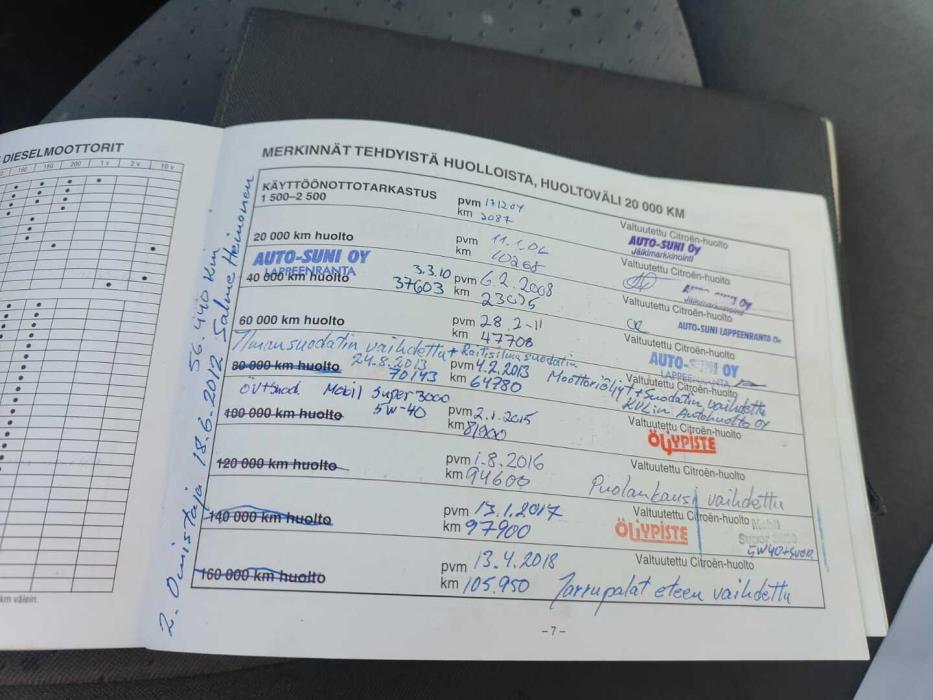 DIESELMOOTTORIT
160 180 200 1 v 2 v 10 v
km välein.
2. Omistaja 18.6.2012 56.440 km Salme Heinonen
MERKINNÄT TEHDYISTÄ HUOLLOISTA, HUOLTOVÄLI 20 000 KM
KÄYTTÖÖNOTTOTARKASTUS pvm 171204
1 500–2 500 km 2087
Valtuutettu Citroën-huolto
AUTO-SUNI OY
Jälkimarkkinointi
20 000 km huolto pvm 11.1.06
km 10268
Valtuutettu Citroën-huolto
AUTO-SUNI OY
Jälkimarkkinointi
AUTO-SUNI OY
LAPPEENRANTA
40 000 km huolto 3.3.10 pvm 6.2.2008
37603 km 23075
Valtuutettu Citroën-huolto
AUTO-SUNI LAPPEENRANTA Oy
60 000 km huolto pvm 28.2-11
km 47708
Valtuutettu Citroën-huolto
AUTO-SUNI OY
LAPPEENRANTA
Ilmansuodatin vaihdettu + Raitisilmasuodatin
80 000 km huolto 24.8.2013 pvm 4.2.2013
70143 km 64780
Moottoriöljyt + suodatin vaihdettu
Valtuutettu Citroën-huolto
KVL:n Autohuolto OY
Mobil Super 3000
5W-40
100 000 km huolto pvm 2.1.2015
km 81900
Valtuutettu Citroën-huolto
ÖLJYPISTE
120 000 km huolto pvm 1.8.2016
km 94600
Valtuutettu Citroën-huolto
Puolankausi vaihdettu
140 000 km huolto pvm 13.1.2017
km 97900
Valtuutettu Citroën-huolto
ÖLJYPISTE
Mobil
Super 3000
5W40+suod
160 000 km huolto pvm 13.4.2018
km 105.950
Valtuutettu Citroën-huolto
Jarrupalat eteen vaihdettu
–7–